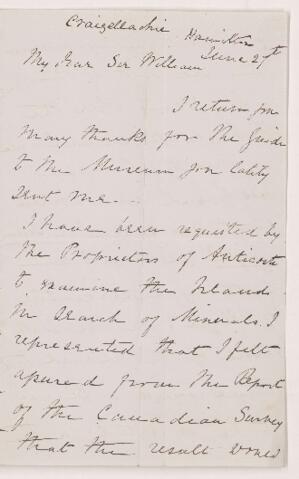 Craigellachie Hamilton
June 27th
My dear Sir William
I return you
Many thanks for the Guide
to the Museum you lately
sent me.
I have been requested by
the Proprietors of Anticosti
to examine the Island
in search of Minerals. I
represented that I felt
assured from the Report
of the Canadian Survey
that the result would